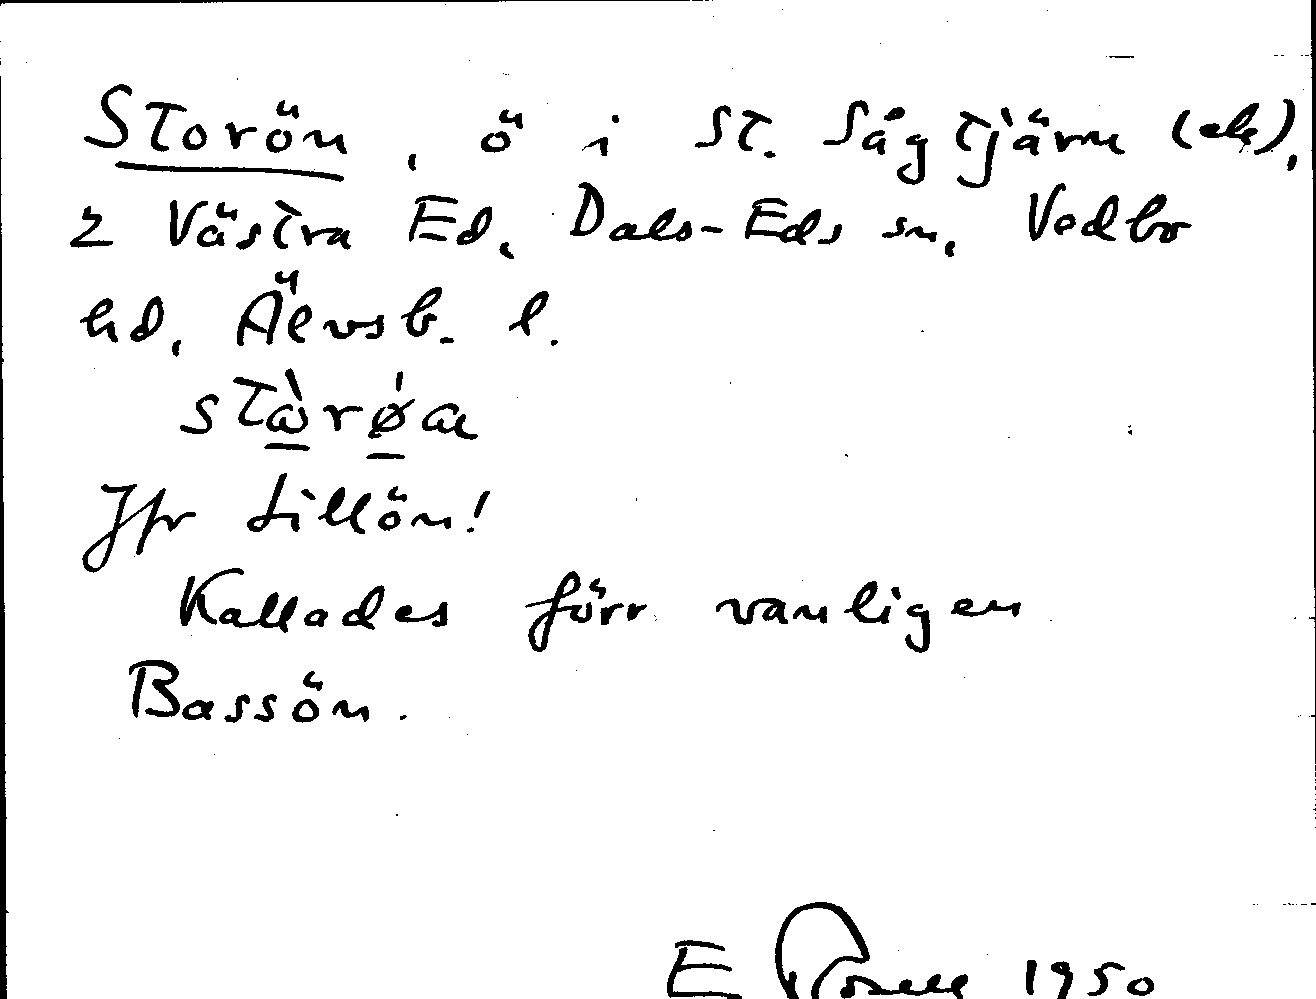 Storön, ö i St. Sågtjärn (ek),
2 Västra Ed, Dals-Eds sn, Vedbo
hd, Älvsb. l.
Jfr Lillön!
Kallades förr vanligen
Bassön.
E Rosell 1950